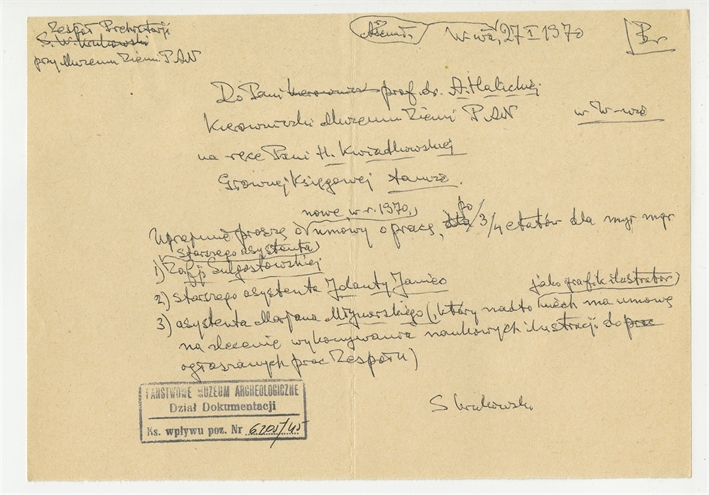 Zespół Prehistorii
S. W. Krukowski
przy Muzeum Ziemi PAN
W-wa, 27 I 1970
Do Pani Kierownicz prof. dr. A. Halickiej
Kierowniczki Muzeum Ziemi PAN
w W-wie
na ręce Pani H. Kwiatkowskiej
Głównej Księgowej tamże.
nowe, w r. 1970,
Uprzejmie proszę o umowy o pracę, po 3/4 etatów dla mgr mgr
(starszego asystenta)
1) Zofji Sulgostowskiej
2) starszego asystenta Jolanty Janiec
jako grafik ilustrator)
3) asystenta Marjana Młynarskiego (, który nadto niech ma umowę
na zlecenie wykonywania naukowych ilustracji do prac
ogłaszanych prac Zespołu)
S Krukowski
PAŃSTWOWE MUZEUM ARCHEOLOGICZNE
Dział Dokumentacji
Ks. wpływu poz. Nr